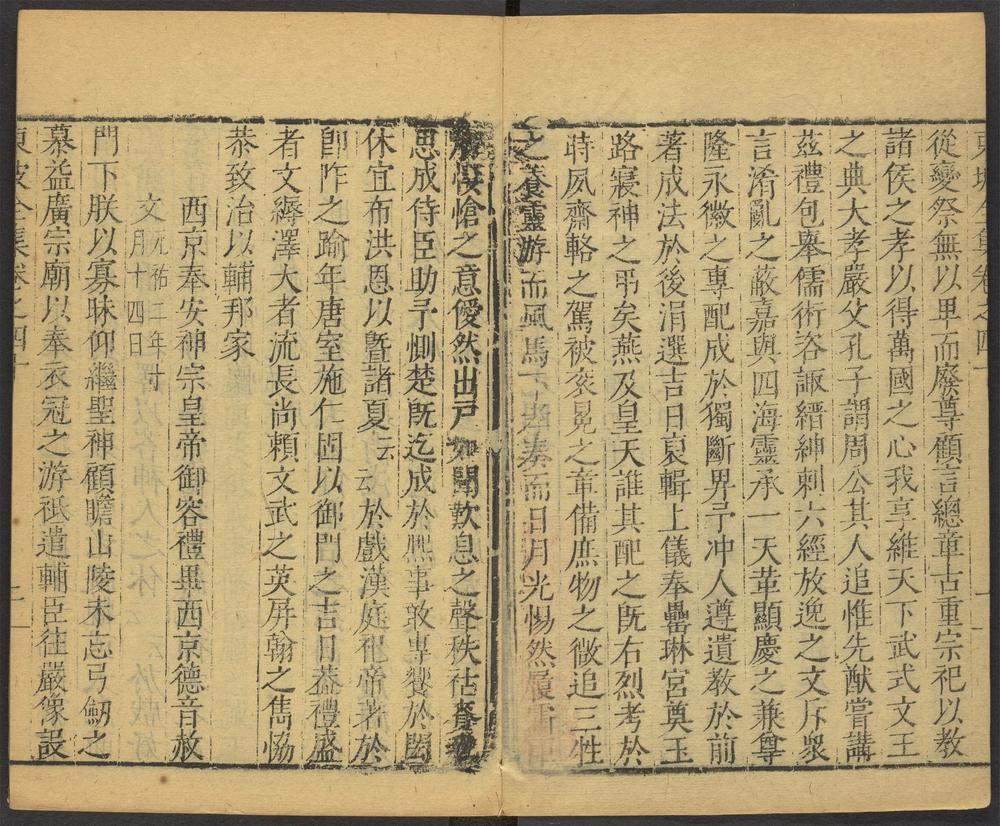 東坡全集卷之四十
從變祭無以卑而廢尊顧言總章古重宗祀以教
諸侯之孝以得萬國之心我享維天下武式文王
之典大孝嚴父孔子謂周公其人追惟先猷嘗講
茲禮包舉儒術咨諏縉紳刺六經放逸之文斥衆
言淆亂之蔽嘉與四海靈承一天革顯慶之兼尊
隆永徽之專配成於獨斷畀予冲人遵遺教於前
著成法於後涓選吉日裒輯上儀奉罍琳宮奠玉
路寢神之弔矣燕及皇天誰其配之既右烈考於
時夙齋輅之駕被衮冕之章備庶物之微追三牲
之養靈游而風馬下奏而日月光惕然履霜
悽愴之意僾然出戸如聞歎息之聲秩祜
思成侍臣助予惻楚既迄成於熈事敢專饗於閎
休宜布洪恩以曁諸夏云云於戲漢庭祀帝著於
卽阼之踰年唐室施仁固以御門之吉日葢禮盛
者文縟澤大者流長尚頼文武之英屏翰之雋恊
恭致治以輔邦家
西京奉安神宗皇帝御容禮畢西京德音赦
文元祐二年十
月十四日
門下朕以寡昧仰繼聖神顧瞻山陵未忘弓劒之
慕益廣宗廟以奉衣冠之游祗遣輔臣往嚴像設
東坡全集卷之四十